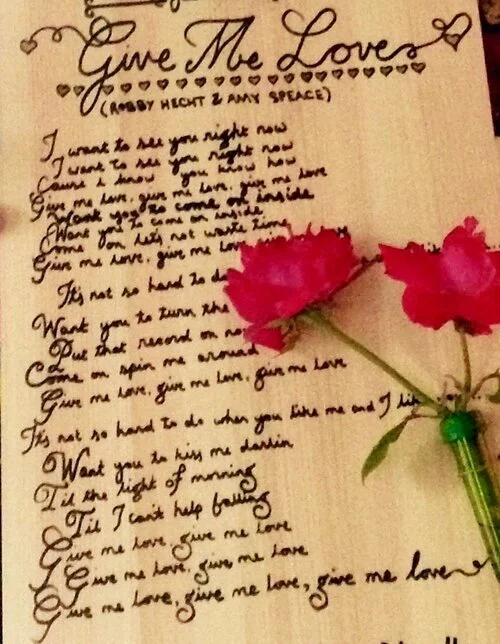 Give Me Love
(ROBBY HECHT & AMY SPEACE)
I want to see you right now
I want to see you right now
Cause I know you know how
Give me love, give me love, give me love
Want you to come on inside
Want you to come on inside
Come on let's not waste time
Give me love, give me love
It's not so hard to do
Want you to turn the
Put that record on
Come on spin me around
Give me love, give me love, give me love
It's not so hard to do when you like me and I
Want you to kiss me darlin
Til the light of morning
Til I can't help falling
Give me love, give me love
Give me love, give me love
Give me love, give me love, give me love